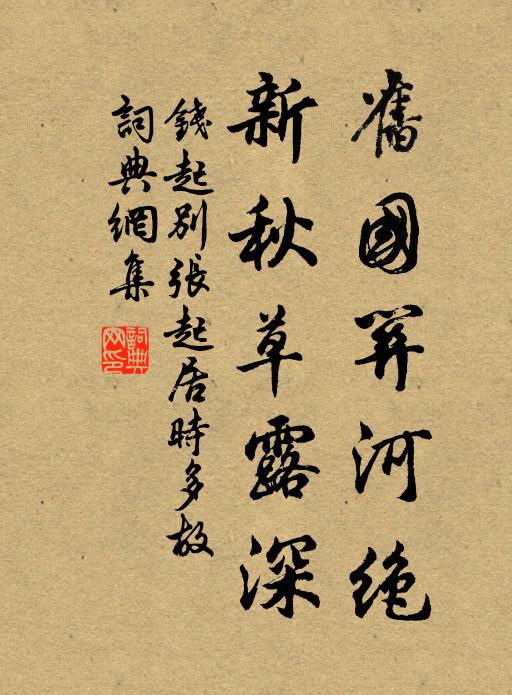 舊國關河絶
新秋草露深
錢起別張起居時多故
詞典網集
詞典網印